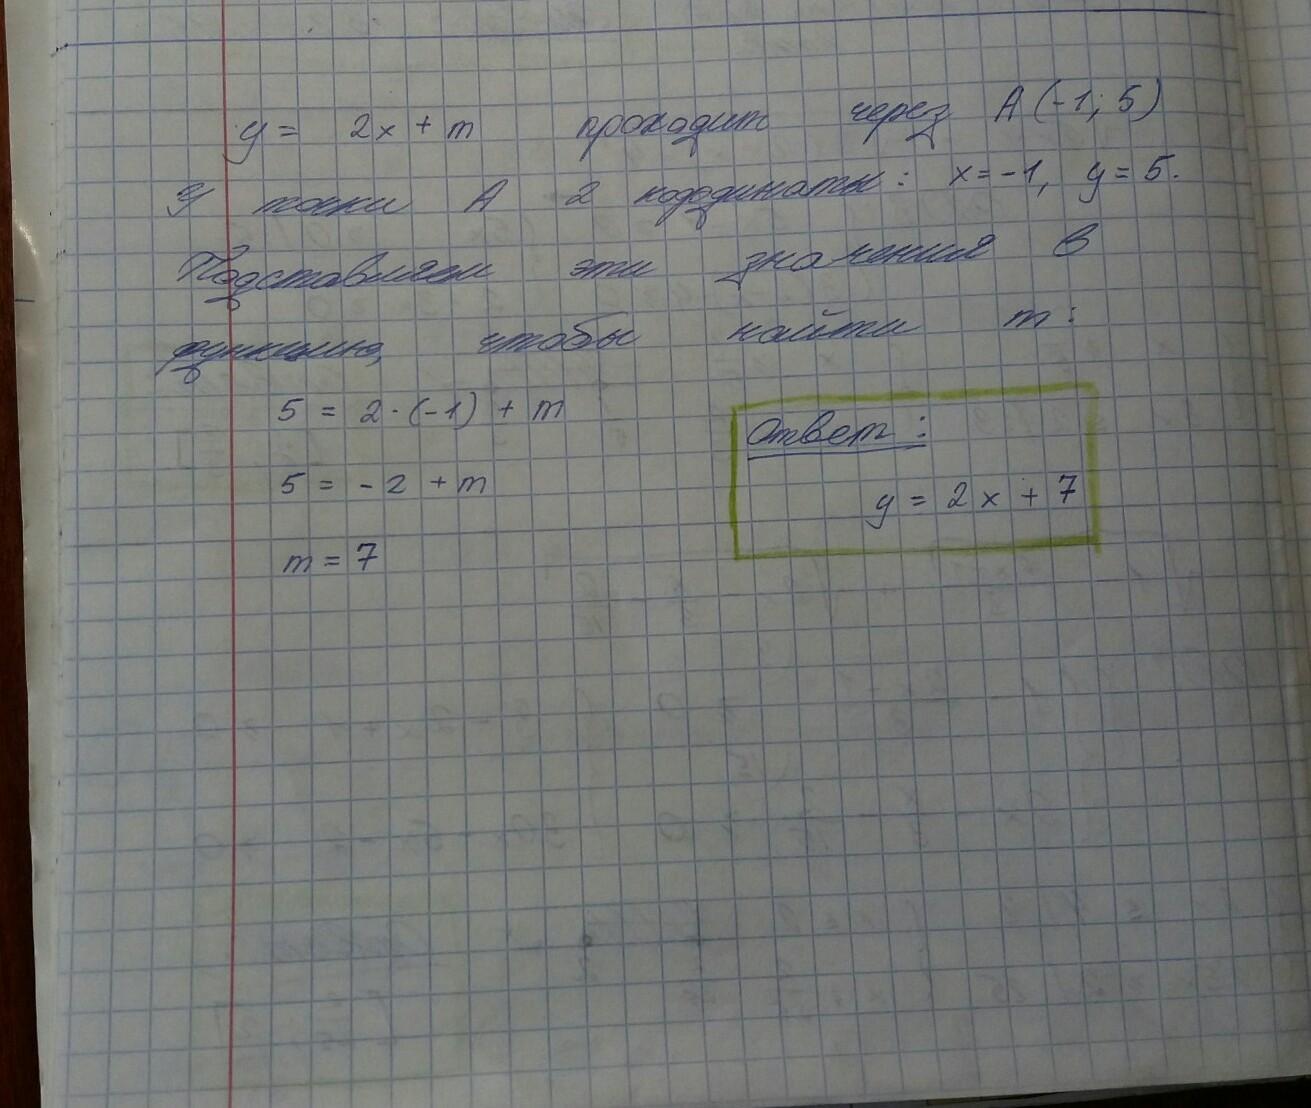 y = 2x + m проходит через A (-1; 5)
У точки A 2 координаты: x = -1, y = 5.
Подставляем эти значения в
функцию, чтобы найти m:
5 = 2 · (-1) + m
5 = -2 + m
m = 7
Ответ:
y = 2x + 7